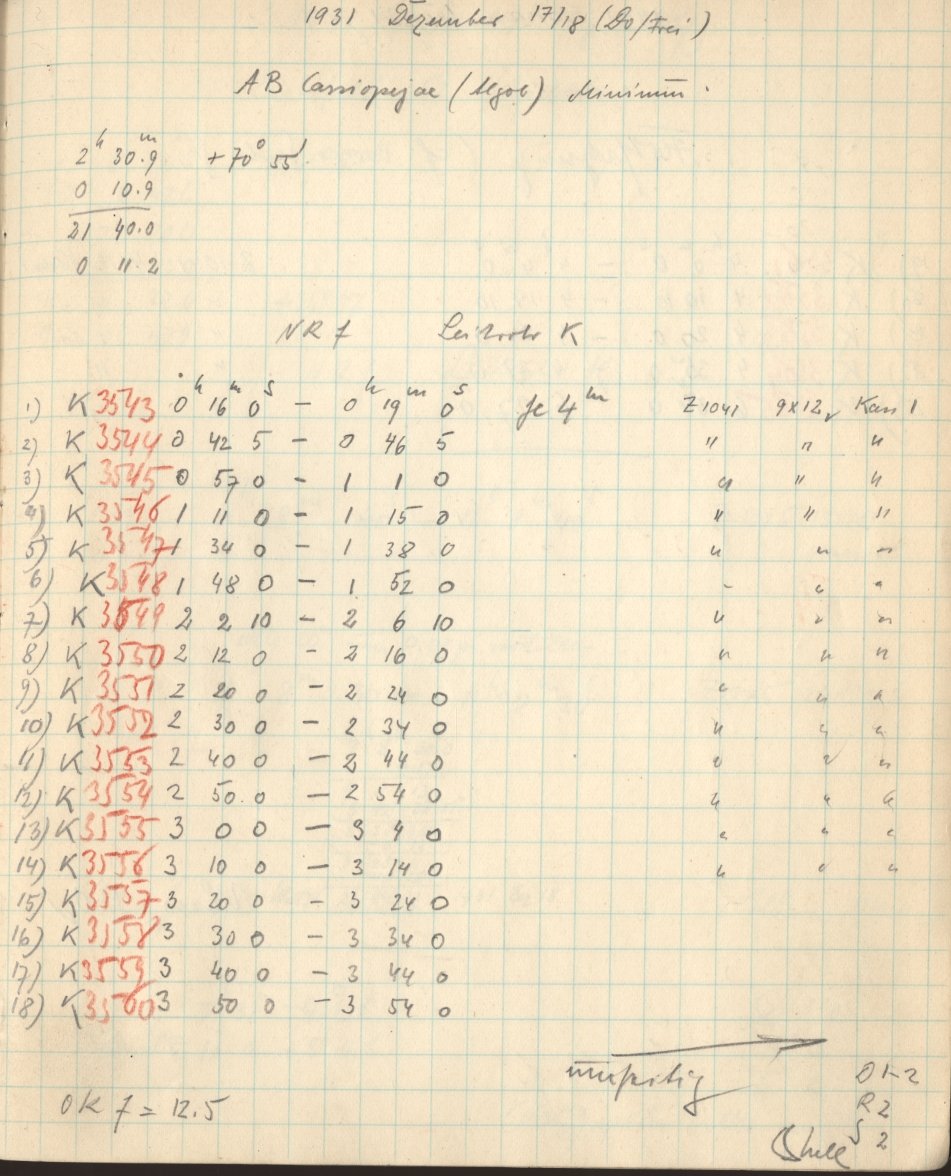 1931 Dezember 17/18 (Do/Frei)
AB Cassiopejae (Algol) Minimum.
2h 30.9m +70° 55'
0 10.9
21 40.0
0 11.2
NR 7 Leitrohr K
1) K 3543 0h 16m 0s – 0h 19m 0s je 4m Z1041 9x12, Kass 1
2) K 3544 0 42 5 – 0 46 5 " " "
3) K 3545 0 57 0 – 1 1 0 " " "
4) K 3546 1 11 0 – 1 15 0 " " "
5) K 3547 1 34 0 – 1 38 0 " " "
6) K 3548 1 48 0 – 1 52 0 " " "
7) K 3549 2 2 10 – 2 6 10 " " "
8) K 3550 2 12 0 – 2 16 0 " " "
9) K 3551 2 20 0 – 2 24 0 " " "
10) K 3552 2 30 0 – 2 34 0 " " "
11) K 3553 2 40 0 – 2 44 0 " " "
12) K 3554 2 50.0 – 2 54 0 " " "
13) K 3555 3 0 0 – 3 4 0 " " "
14) K 3556 3 10 0 – 3 14 0 " " "
15) K 3557 3 20 0 – 3 24 0
16) K 3558 3 30 0 – 3 34 0
17) K 3559 3 40 0 – 3 44 0
18) K 3560 3 50 0 – 3 54 0
OK 7 = 12.5
R 2
S 2